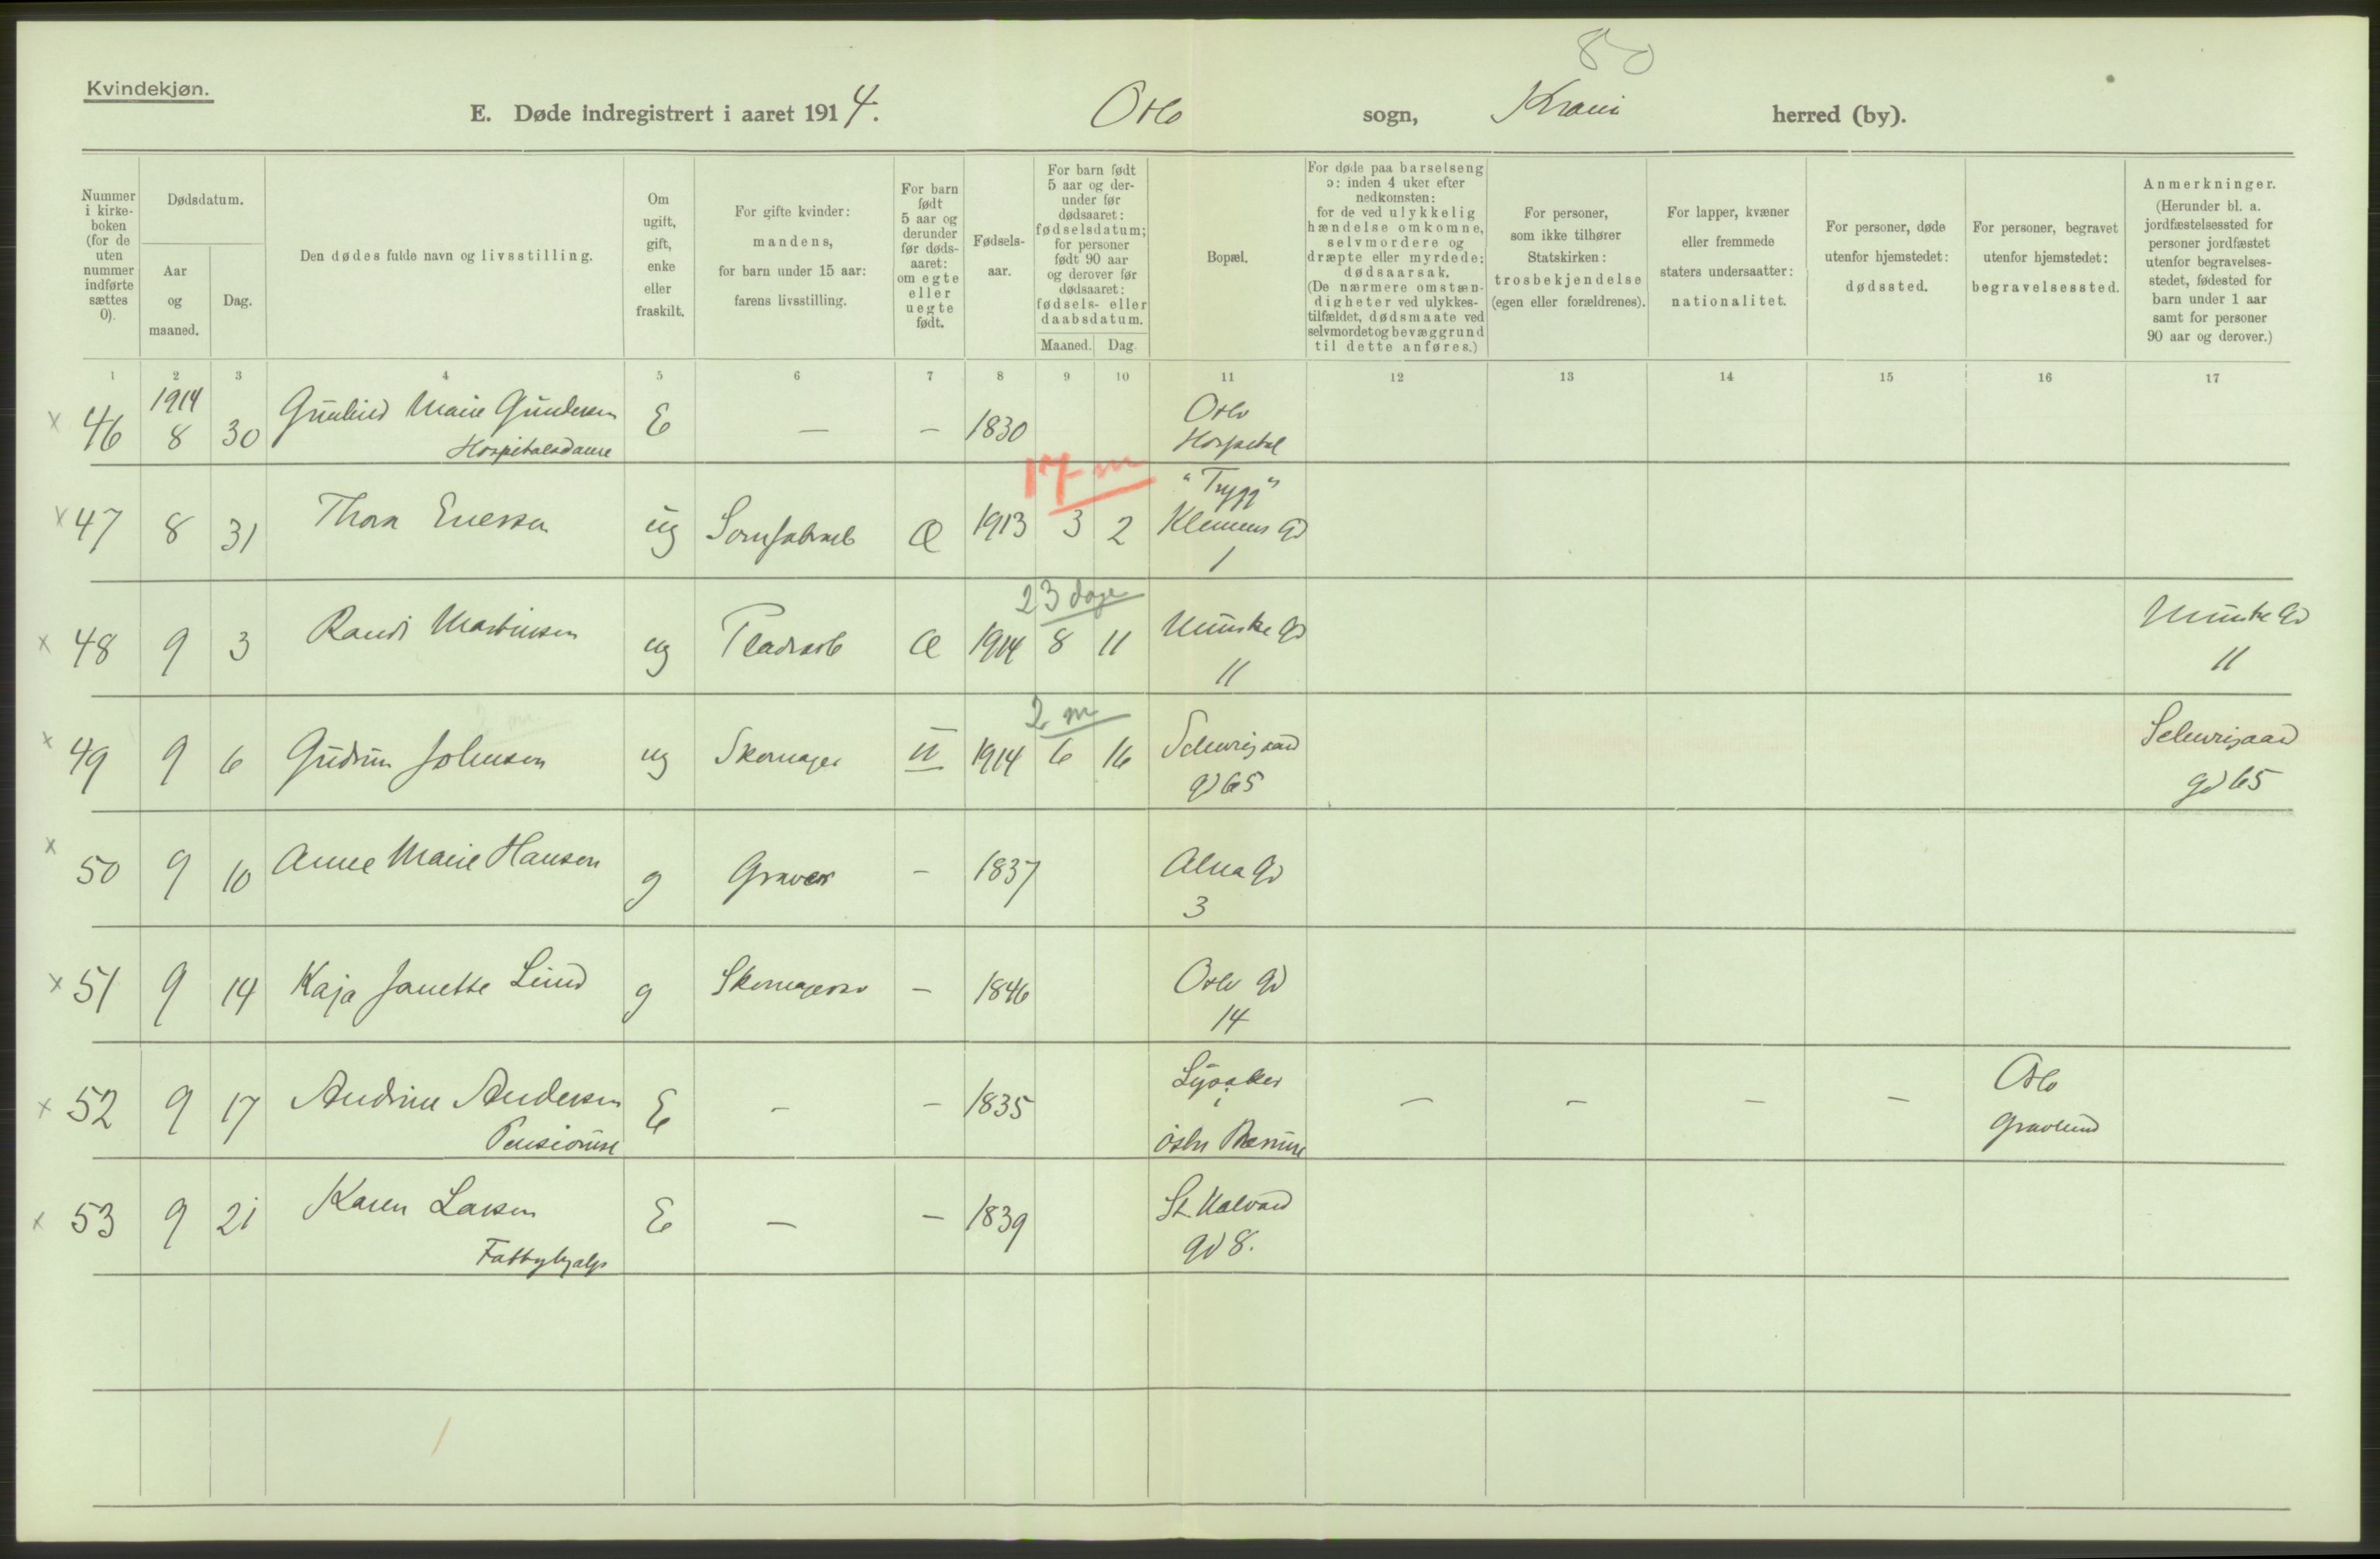 80
Kvindekjøn.
E. Døde indregistrert i aaret 1914. Oslo sogn, Krania herred (by).
Nummer i kirke-boken (for de uten nummer indførte sættes 0).
Dødsdatum.
Aar og maaned.
Dag.
Den dødes fulde navn og livsstilling.
Om ugift, gift, enke eller fraskilt.
For gifte kvinder: mandens, for barn under 15 aar: farens livsstilling.
For barn født 5 aar og derunder før døds-aaret: om egte eller uegte født.
Fødsels-aar.
For barn født 5 aar og der-under før dødsaaret: fødselsdatum; for personer født 90 aar og derover før dødsaaret: fødsels- eller daabsdatum.
Maaned. Dag.
Bopæl.
For døde paa barselseng ɔ: inden 4 uker efter nedkomsten: for de ved ulykkelig hændelse omkomne, selvmordere og dræpte eller myrdede: dødsaarsak. (De nærmere omstæn-digheter ved ulykkes-tilfældet, dødsmaate ved selvmordet og bevæggrund til dette anføres.)
For personer, som ikke tilhører Statskirken: trosbekjendelse (egen eller forældrenes).
For lapper, kvæner eller fremmede staters undersaatter: nationalitet.
For personer, døde utenfor hjemstedet: dødssted.
For personer, begravet utenfor hjemstedet: begravelsessted.
Anmerkninger. (Herunder bl. a. jordfæstelsessted for personer jordfæstet utenfor begravelses-stedet, fødested for barn under 1 aar samt for personer 90 aar og derover.)
1 2 3 4 5 6 7 8 9 10 11 12 13 14 15 16 17
1914
x 46 8 30 Gunhild Marie Gundersen E — — 1830 Oslo
Hospitalsdame Hospital
17 m "Trygg"
x 47 8 31 Thora ug Æ 1913 3 2 Klemens Gd
1
23 dage
x 48 9 3 Randi Martinsen ug Pladsarb Æ 1914 8 11 Munke Gd Munke Gd
11 11
2 m
x 49 9 6 Gudrun Johnsen ug Skomager U 1914 6 16 Schweigaard Schweigaard
gd 65 gd 65
x 50 9 10 Anne Marie Hansen g Graver — 1837 Alna Gd
3
x 51 9 14 Kaja Janette Lund g — 1846 Oslo Gd
14
x 52 9 17 Andrine Andersen E — — 1835 Lysaker — — — — Oslo
Pensionise i Østre Bærum Gravlund
x 53 9 21 Karen Larsen E — — 1839 St. Halvard
Fattighjælp gd 8.